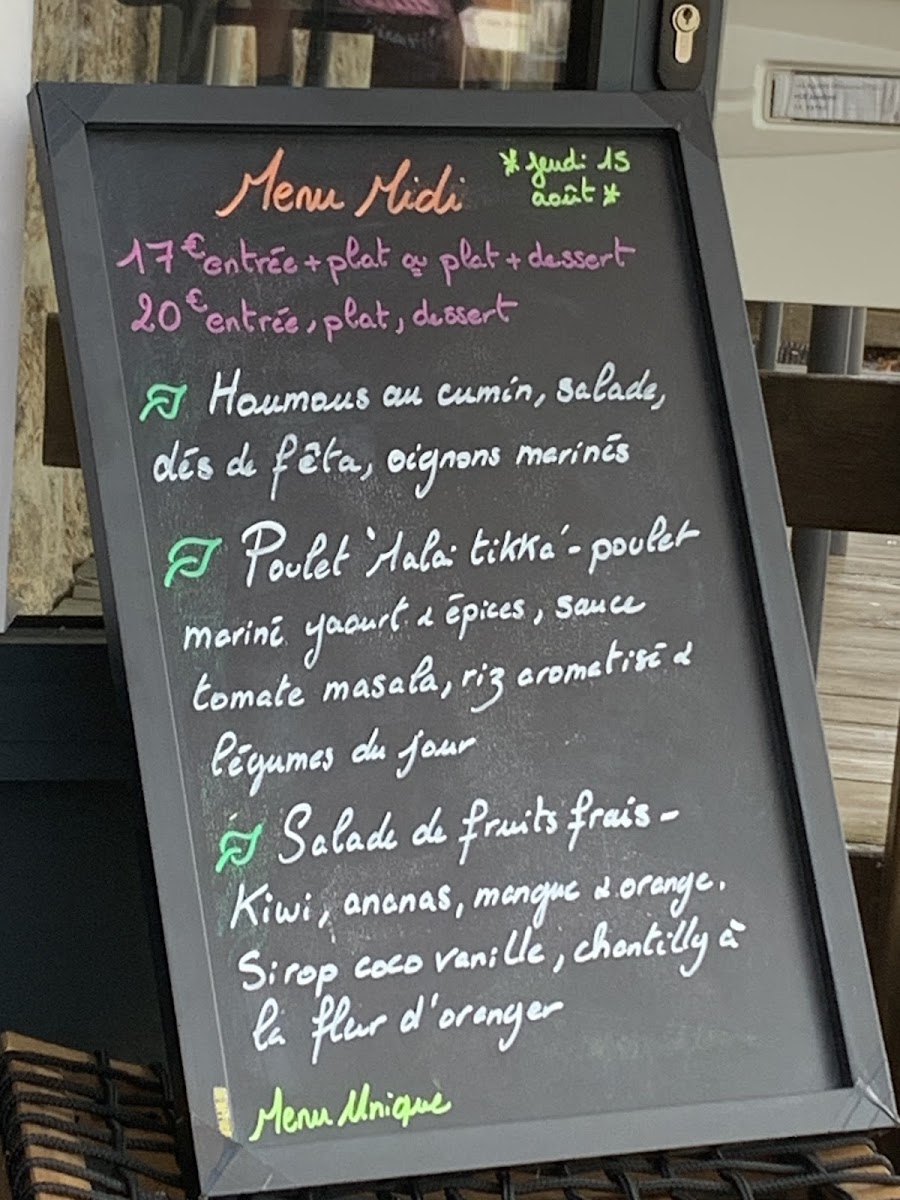 Menu Midi
* Jeudi 15
août *
17€ entrée + plat ou plat + dessert
20€ entrée, plat, dessert
Houmous au cumin, salade,
dés de fêta, oignons marinés
Poulet 'Malai tikka' - poulet
mariné yaourt & épices, sauce
tomate masala, riz aromatisé &
légumes du jour
Salade de fruits frais -
Kiwi, ananas, mangue & orange.
Sirop coco vanille, chantilly à
la fleur d'oranger
Menu Unique